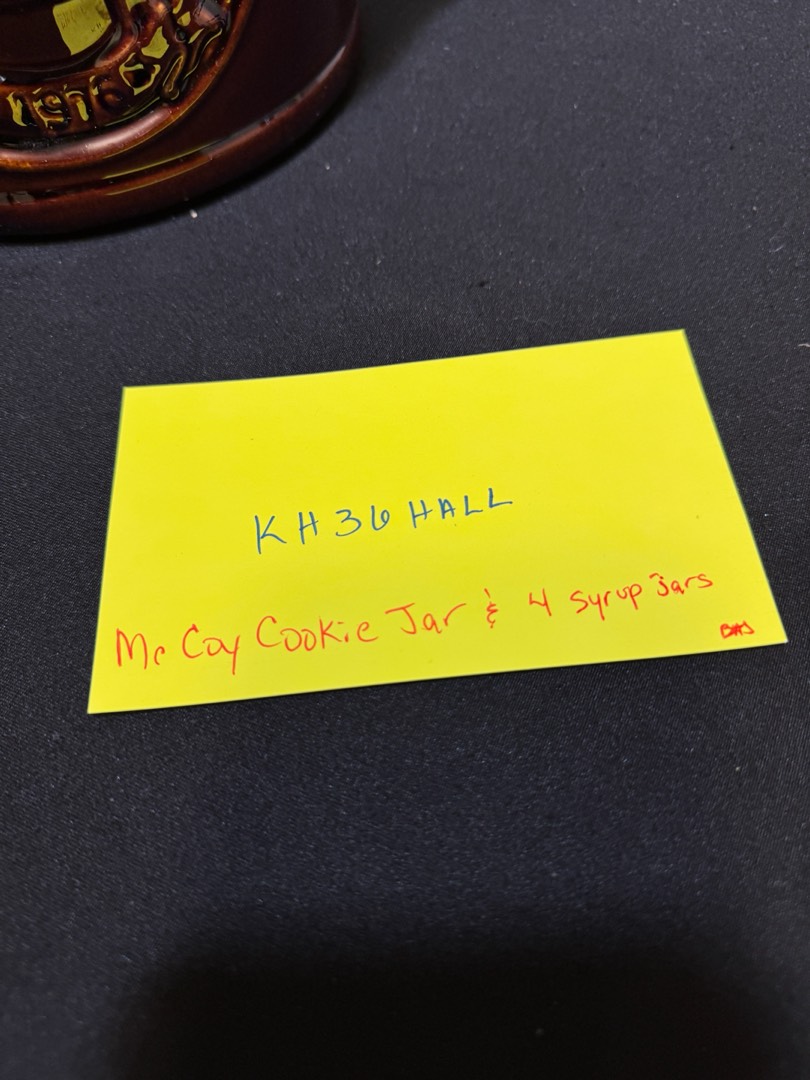 KH36 HALL
McCoy Cookie Jar & 4 syrup Jars